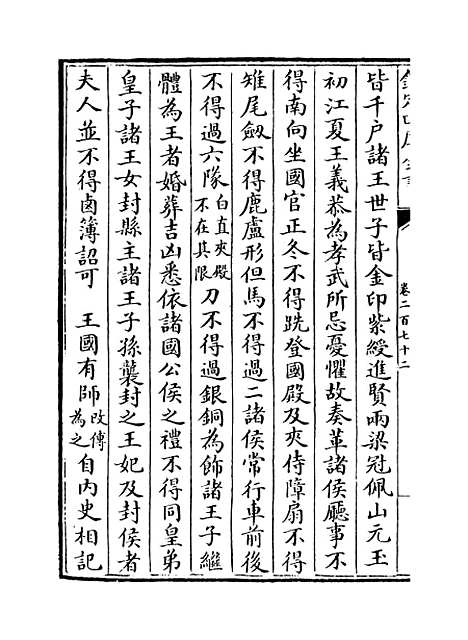 欽定四庫全書
卷二百七十二
皆千户諸王世子皆金印紫綬進賢兩梁冠佩山元玉
初江夏王義恭為孝武所忌憂懼故奏革諸侯廳事不
得南向坐國官正冬不得跣登國殿及夾侍障扇不得
雉尾劔不得鹿盧形但馬不得過二諸侯常行車前後
不得過六隊白直夾轂不在其限刀不得過銀銅為飾諸王子繼
體為王者婚葬吉凶悉依諸國公侯之禮不得同皇弟
皇子諸王女封縣主諸王子孫襲封之王妃及封侯者
夫人並不得鹵簿詔可　王國有師改傅為之自内史相記